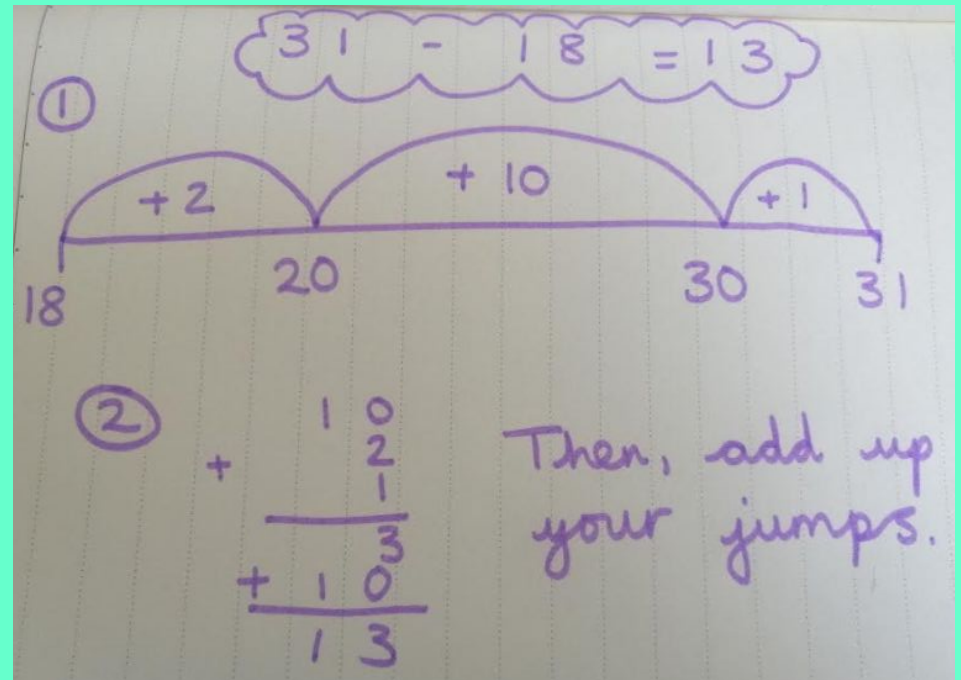 31 - 18 = 13
①
+2 +10 +1
18 20 30 31
②
10
+ 2
1
3
+ 10
13
Then, add up
your jumps.